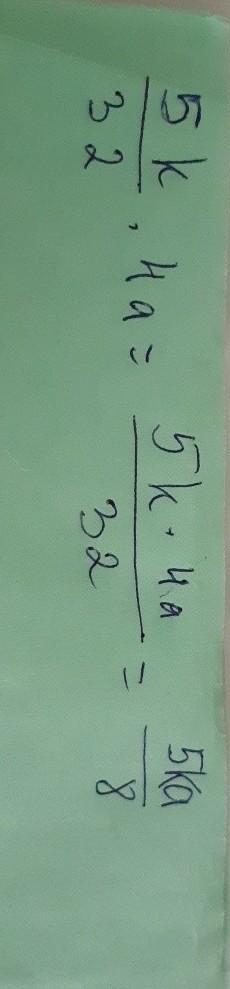 5k/32 · 4a = 5k · 4a/32 = 5ka/8